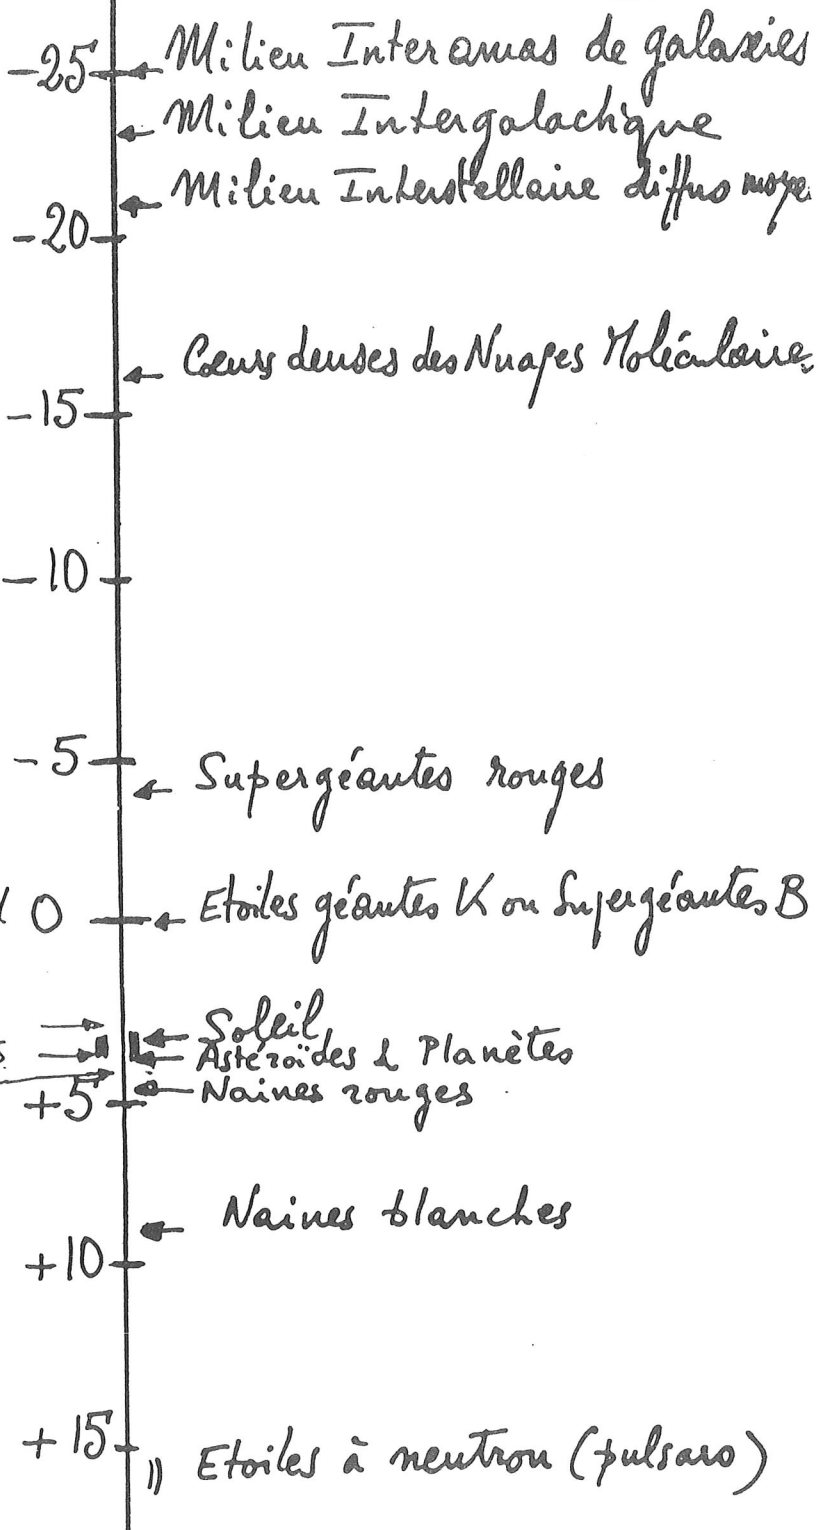 -25 Milieu Interamas de galaxies
Milieu Intergalactique
Milieu Interstellaire diffus
-20
Cœurs denses des Nuages
-15
-10
-5
Supergéantes rouges
0 Etoiles géantes K ou Supergéantes B
Soleil
Astéroïdes & Planètes
Naines rouges
+5
Naines blanches
+10
+15
Etoiles à neutron (pulsars)